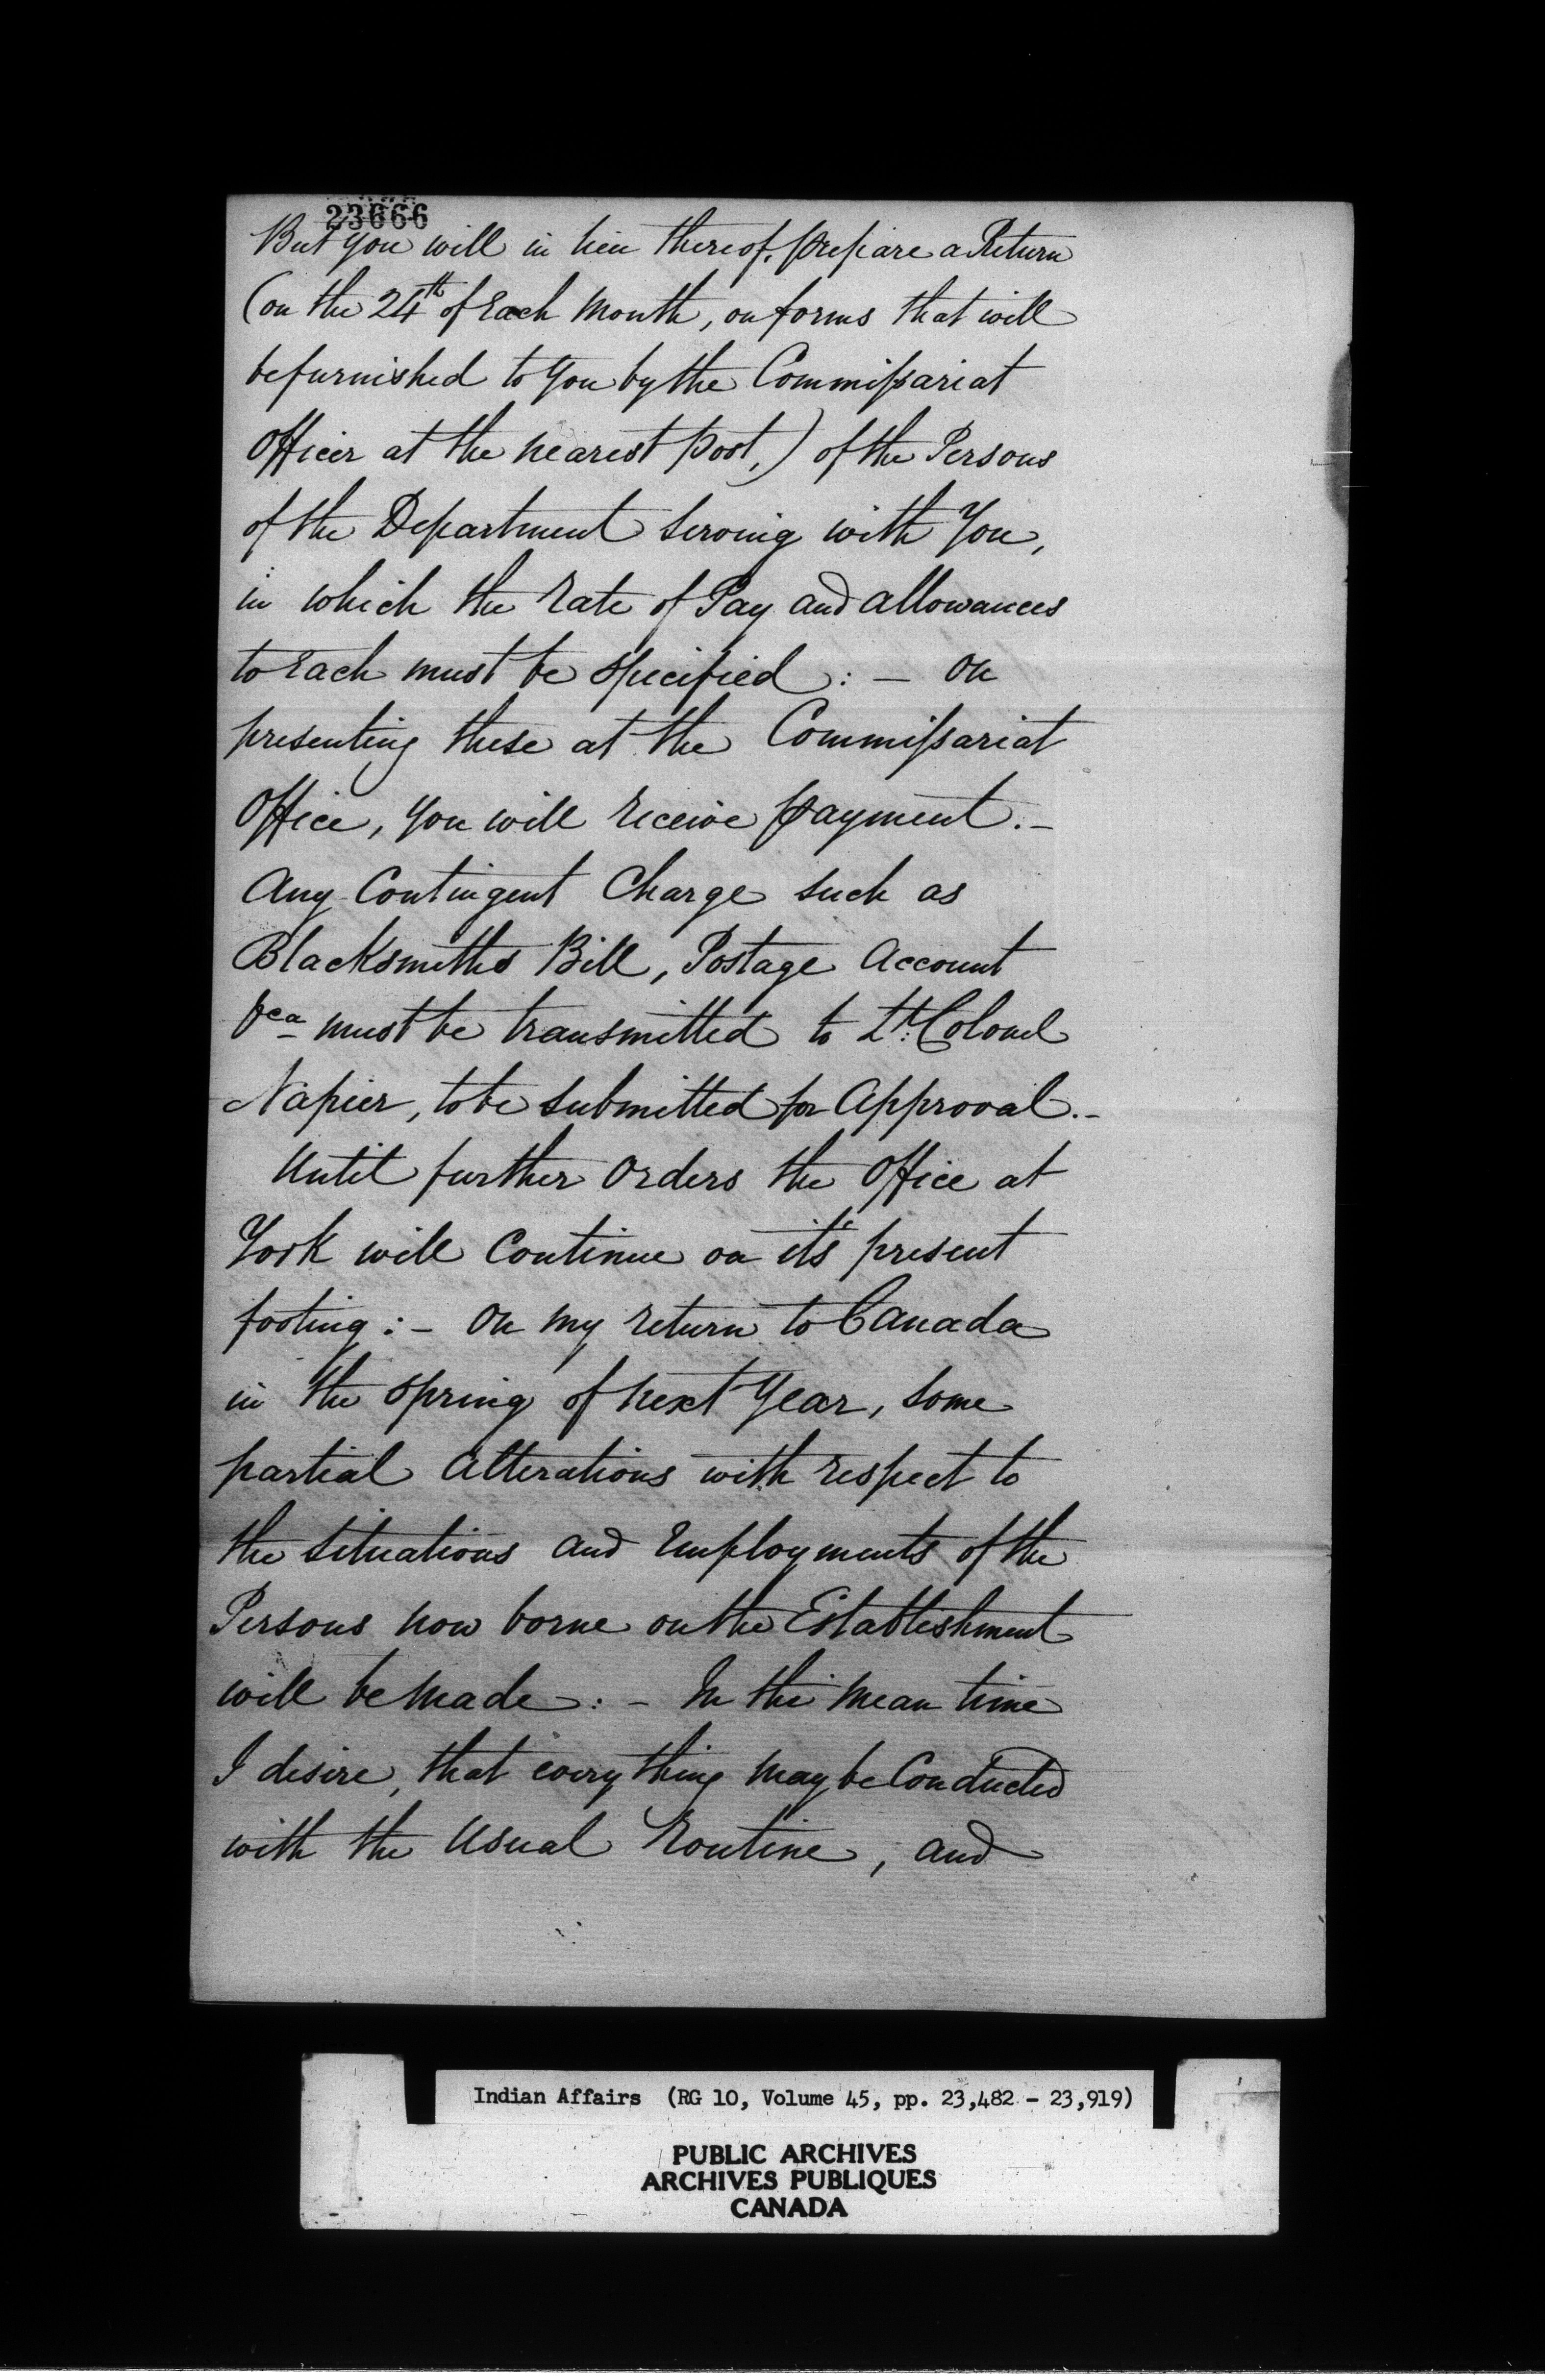 23666
But you will in lieu thereof, prepare a Return
(on the 24th of Each Month, on forms that will
be furnished to You by the Commissariat
Officer at the nearest Post,) of the Persons
of the Department serving with You,
in which the rate of Pay and allowances
to Each must be specified : — On
presenting these at the Commissariat
Office, you will receive payment. —
Any Contingent Charge such as
Blacksmiths Bill, Postage Account
&ca must be transmitted to Lt. Colonel
Napier, to be submitted for Approval. —
Until further Orders the Office at
York will Continue on it's present
footing : — On my return to Canada
in the Spring of next Year, some
partial Alterations with respect to
the situations and Employments of the
Persons now borne on the Establishment
will be made : — In the mean time
I desire, that every thing may be Conducted
with the Usual Routine, and
Indian Affairs (RG 10, Volume 45, pp. 23,482 - 23,919)
PUBLIC ARCHIVES
ARCHIVES PUBLIQUES
CANADA